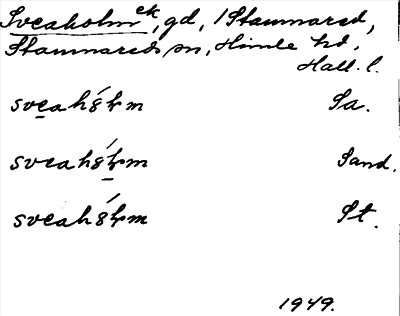 Sveaholm ek, gd, 1 Stamnared,
Stamnareds sn, Himle hd,
Hall. l.
sveahólm Sa.
sveahólm Sand.
sveahólm St.
1949.